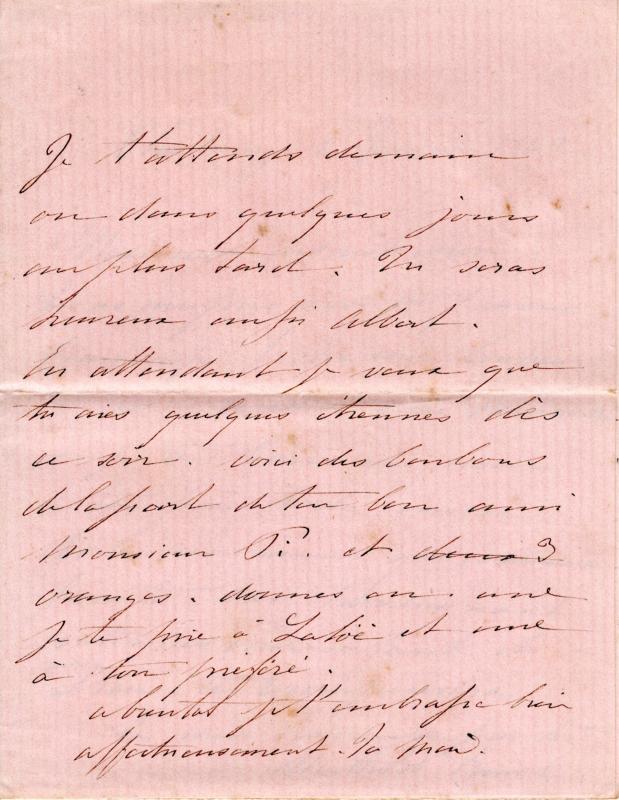 Je t'attends demain
ou dans quelques jours
au plus tard. Tu seras
heureux aussi Albert.
En attendant je veux que
tu aies quelques étrennes dès
ce soir. voici des bonbons
de la part de ton bon ami
Monsieur P. et deux 3
oranges. donnes en une
je te prie à et une
à ton préféré.
a bientot je t'embrasse bien
affectueusement. Ta